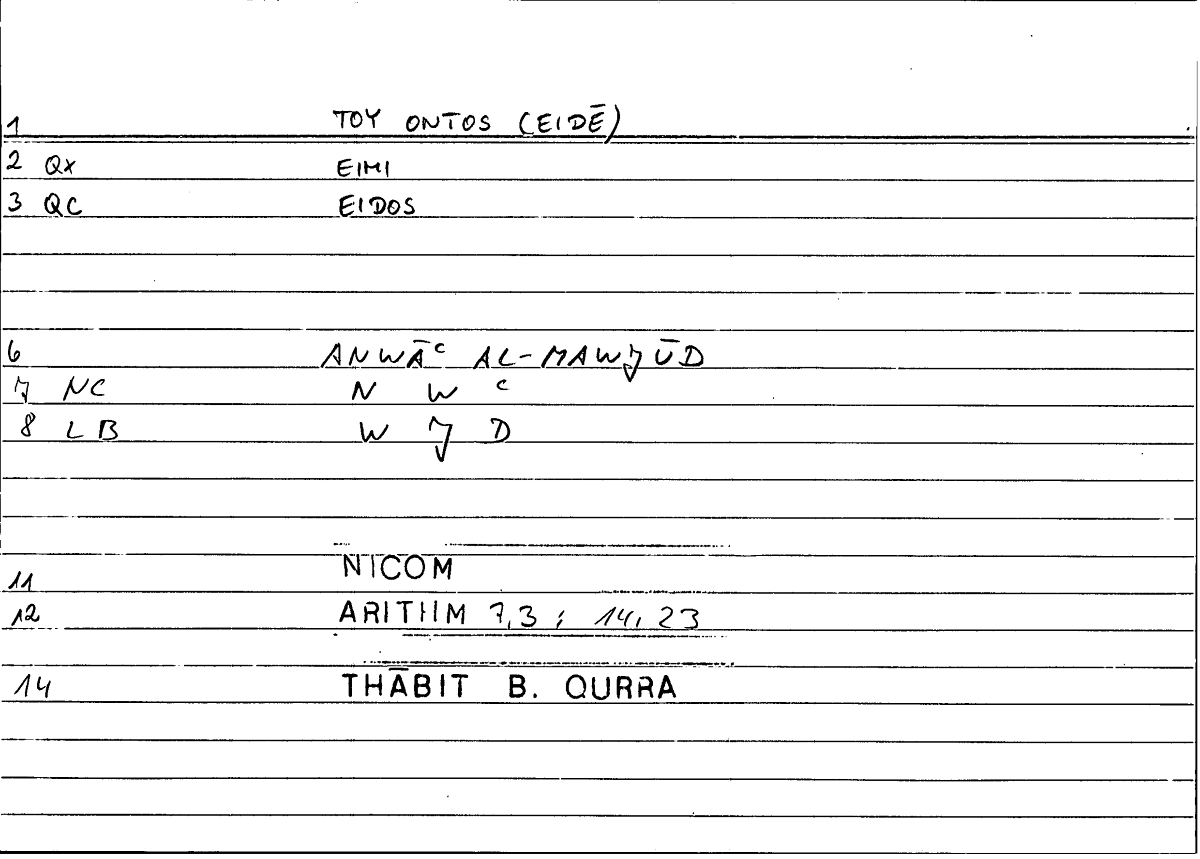 1 TOY ONTOS (EIDĒ)
2 QX EIMI
3 QC EIDOS
6 ANWĀᶜ AL-MAWJŪD
7 NC N W ᶜ
8 LB W J D
11 NICOM
12 ARITHM 7,3 ; 14,23
14 THĀBIT B. QURRA